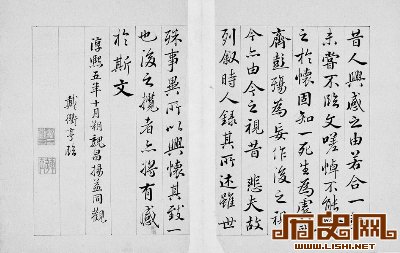 昔人興感之由若合一
未嘗不臨文嗟悼不能
之於懷固知一死生為虛
齊彭殤為妄作後之視
今亦由今之視昔 悲夫故
列叙時人錄其所述雖世
殊事異所以興懷其致一
也後之攬者亦將有感
於斯文
淳熙五年十月朔魏昌揚益同觀
戴衢亨臨
历史网
WWW.LISHI.NET